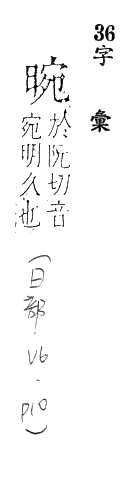 36字 彙
晼
於阮切音
宛明久也
(日部.V6.P10)